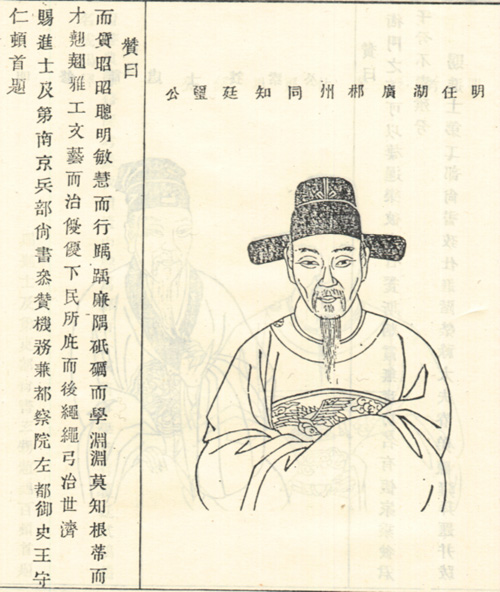 明任湖廣郴州同知廷璽公
贊曰
而質昭昭聰明敏慧而行踽踽廉隅砥礪而學淵淵莫知根蒂而
才翹翹雅工文藝而治優優下民所庇而後繩繩弓冶世濟
賜進士及第南京兵部尚書叅贊機務兼都察院左都御史王守
仁頓首題